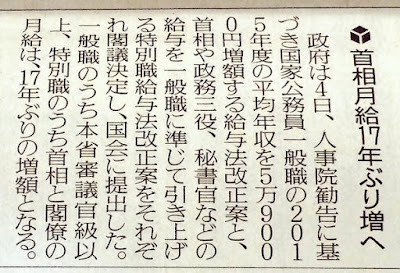 首相月給17年ぶり増へ
政府は4日、人事院勧告に基
づき国家公務員一般職の201
5年度の平均年収を5万900
0円増額する給与法改正案と、
首相や政務三役、秘書官などの
給与を一般職に準じて引き上げ
る特別職給与法改正案をそれぞ
れ閣議決定し、国会に提出した。
一般職のうち本省審議官級以
上、特別職のうち首相と閣僚の
月給は、17年ぶりの増額となる。